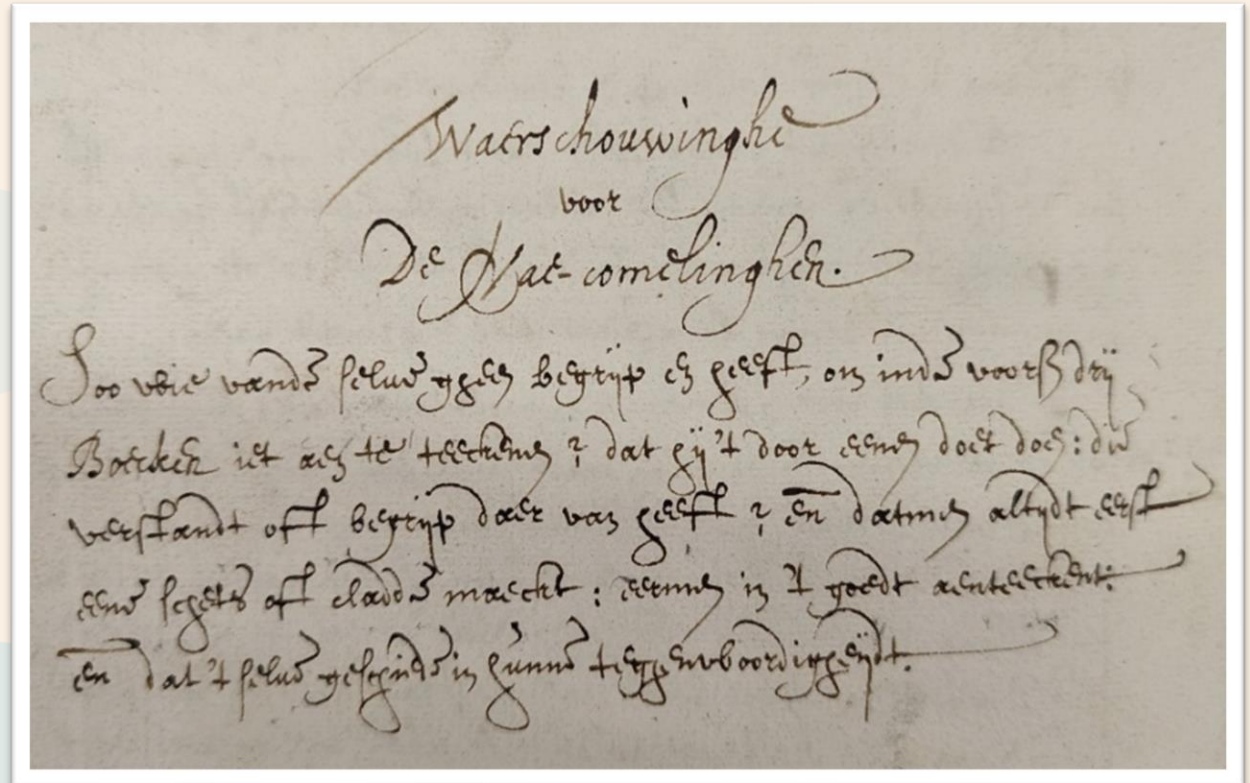 Waerschouwinghe
voor
De Nae-comelinghen.
Soo wie vande selve gheen begrijp en heeft, om inde voors. drij
Boecken iet aen te teeckenen? dat hij 't door eenen doet doen: die
verstandt oft begrijp daer van heeft? en̄ datmen altijdt eerst
eene schets oft cladde maeckt: eermen in 't goedt aenteeckent:
en̄ dat 't selve geschiede in hunne teghenwoordigheijdt.